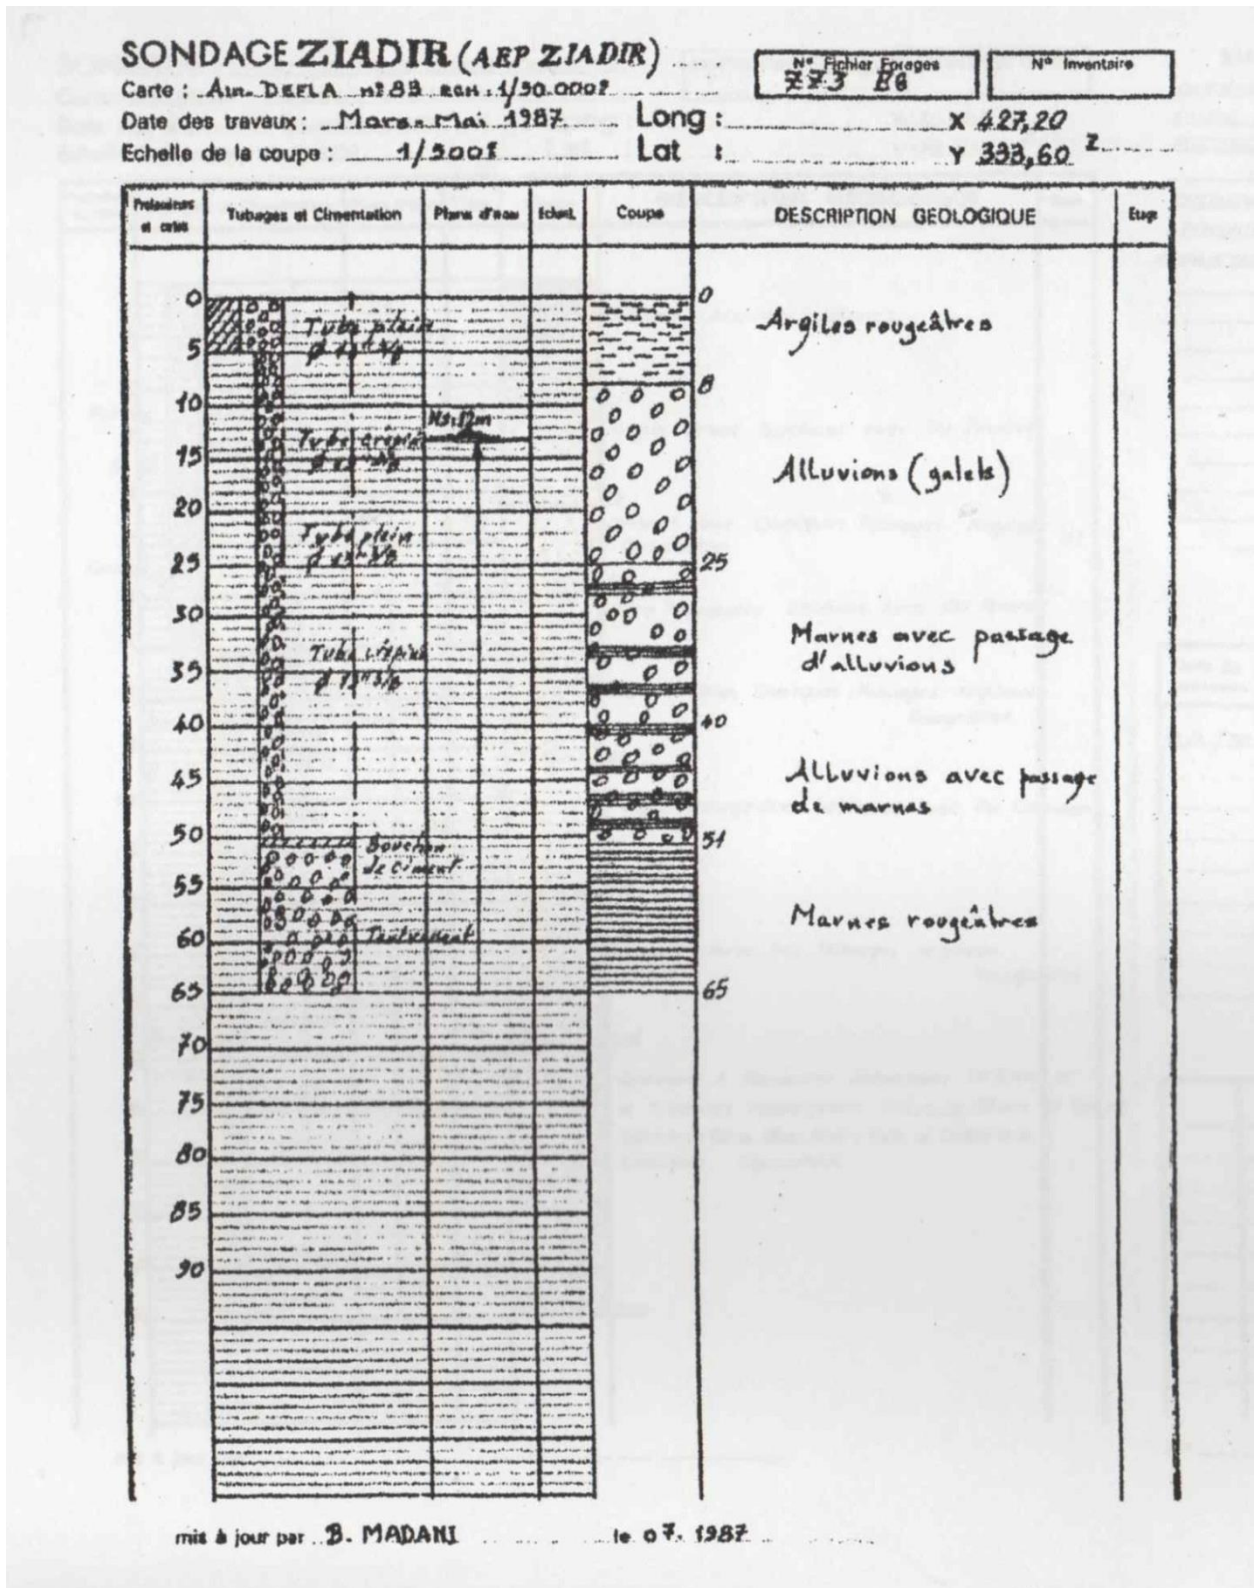 SONDAGE ZIADIR (AEP ZIADIR)
N° Fichier Forages
773 B6
N° Inventaire
Carte : Ain-DEFLA n°83 ECH: 1/50.000e
Date des travaux : Mars-Mai 1987
Long : X 427,20
Echelle de la coupe : 1/500e
Lat : Y 333,60 Z
Profondeurs et cotes
Tubages et Cimentation
Plans d'eau
Echant.
Coupe
DESCRIPTION GEOLOGIQUE
Etage
0
5
10
15
20
25
30
35
40
45
50
55
60
65
70
75
80
85
90
Tube plein
Ø 13" 3/8
Tube crepiné
Ø 13" 3/8
Tube plein
Ø 13" 3/8
Tube crepiné
Ø 13" 3/8
Bouchon
de ciment
NS: 12m
0
8
25
40
51
65
Argiles rougeâtres
Alluvions (galets)
Marnes avec passage
d'alluvions
Alluvions avec passage
de marnes
Marnes rougeâtres
mis à jour par B. MADANI le 07. 1987